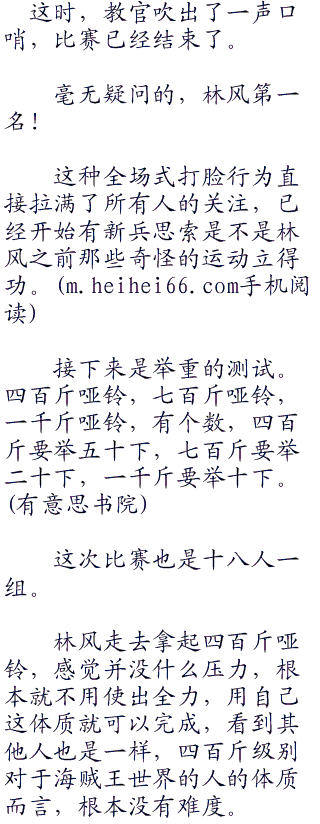 这时，教官吹出了一声口
哨，比赛已经结束了。
毫无疑问的，林风第一
名！
这种全场式打脸行为直
接拉满了所有人的关注，已
经开始有新兵思索是不是林
风之前那些奇怪的运动立得
功。(m.heihei66.com手机阅
读)
接下来是举重的测试。
四百斤哑铃，七百斤哑铃，
一千斤哑铃，有个数，四百
斤要举五十下，七百斤要举
二十下，一千斤要举十下。
(有意思书院)
这次比赛也是十八人一
组。
林风走去拿起四百斤哑
铃，感觉并没什么压力，根
本就不用使出全力，用自己
这体质就可以完成，看到其
他人也是一样，四百斤级别
对于海贼王世界的人的体质
而言，根本没有难度。